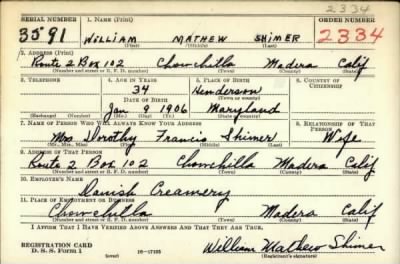 2334
SERIAL NUMBER 1. NAME (Print) ORDER NUMBER
3591 WILLIAM MATHEW SHIMER 2334
(First) (Middle) (Last)
2. ADDRESS (Print)
Route 2 Box 102 Chowchilla Madera Calif
(Number and street or R. F. D. number) (Town) (County) (State)
3. TELEPHONE 4. AGE IN YEARS 5. PLACE OF BIRTH 6. COUNTRY OF CITIZENSHIP
34 Henderson
DATE OF BIRTH (Town or county)
Jan 9 1906 Maryland
(Exchange) (Number) (Mo.) (Day) (Yr.) (State or country)
7. NAME OF PERSON WHO WILL ALWAYS KNOW YOUR ADDRESS 8. RELATIONSHIP OF THAT PERSON
Mrs Dorothy Francis Shimer Wife
(Mr., Mrs., Miss) (First) (Middle) (Last)
9. ADDRESS OF THAT PERSON
Route 2 Box 102 Chowchilla Madera Calif
(Number and street or R. F. D. number) (Town) (County) (State)
10. EMPLOYER'S NAME
Danish Creamery
11. PLACE OF EMPLOYMENT OR BUSINESS
Chowchilla Madera Calif
(Number and street or R. F. D. number) (Town) (County) (State)
I AFFIRM THAT I HAVE VERIFIED ABOVE ANSWERS AND THAT THEY ARE TRUE.
REGISTRATION CARD William Mathew Shimer
D. S. S. Form 1 (over) 16-17105 (Registrant's signature)